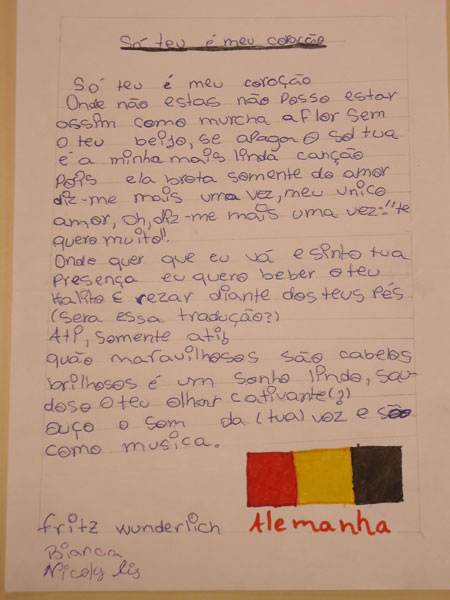 Só teu é meu coração
Só teu é meu coroção
Onde não estas não posso estar
assim como murcha a flor sem
o teu beijo, se apaga o sol tua
é a minha mais linda canção
Pois ela brota somente do amor
diz-me mais uma vez, meu unico
amor, oh, diz-me mais uma vez:"te
quero muito".
Onde quer que eu vá e sinto tua
presença eu quero beber o teu
Halito E rezar diante dos teus Pés
(sera essa tradução?)
A ti, somente a ti
quão maravilhosos são cabelos
brilhosos é um sonho lindo, sau-
doso o teu olhar cativante(?)
ouço o som da (tua) voz e
como musica.
fritz wunderlich
Alemanha
Bianca
Nicoly lis